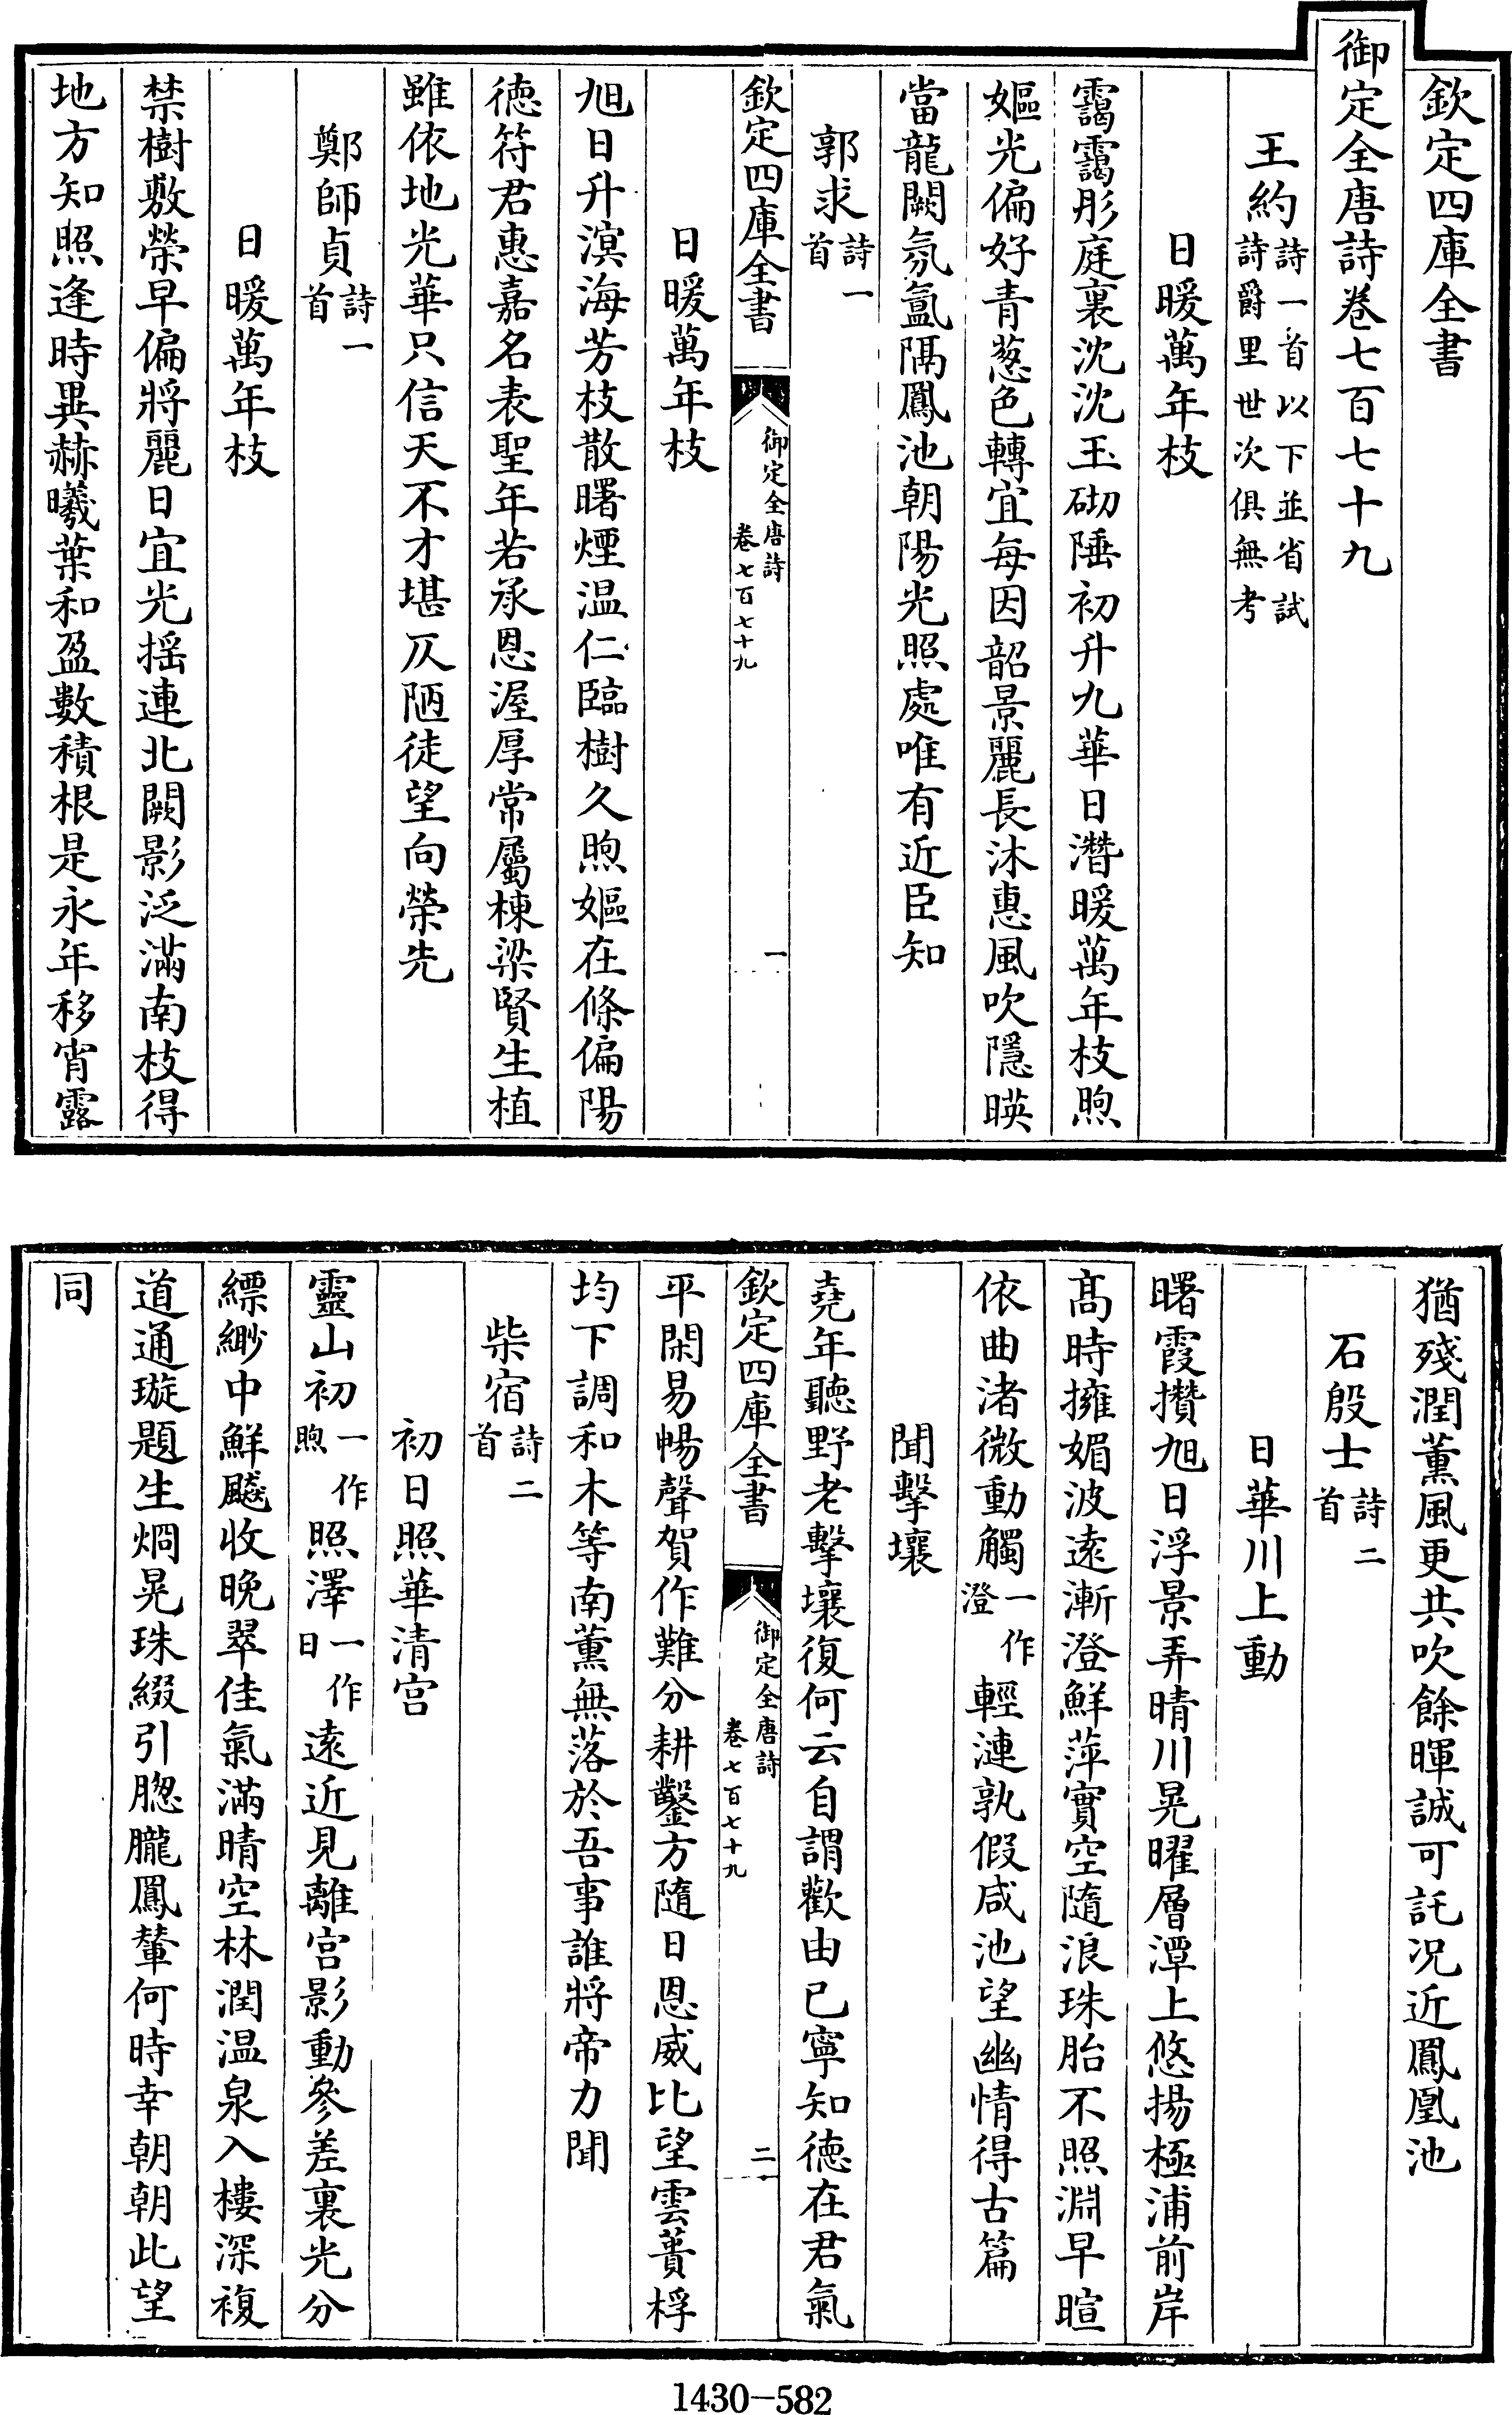 欽定四庫全書
御定全唐詩卷七百七十九
王約詩一首以下並省試詩爵里世次俱無考
日暖萬年枝
靄靄彤庭裏沈沈玉砌陲初升九華日潛暖萬年枝煦
嫗光偏好青葱色轉宜每因韶景麗長沐惠風吹隱暎
當龍闕氛氲隔鳳池朝陽光照處唯有近臣知
郭求詩一首
欽定四庫全書
御定全唐詩
卷七百七十九
一
日暖萬年枝
旭日升溟海芳枝散曙煙温仁臨樹久煦嫗在條偏陽
徳符君惠嘉名表聖年若承恩渥厚常屬棟梁賢生植
雖依地光華只信天不才堪仄陋徒望向榮先
鄭師貞詩一首
日暖萬年枝
禁樹敷榮早偏將麗日宜光揺連北闕影泛滿南枝得
地方知照逢時異赫曦葉和盈數積根是永年移宵露
猶殘潤薫風更共吹餘暉誠可託况近鳳凰池
石殷士詩二首
日華川上動
曙霞攢旭日浮景弄晴川晃曜層潭上悠揚極浦前岸
髙時擁媚波遠漸澄鮮萍實空隨浪珠胎不照淵早暄
依曲渚微動觸一作澄輕漣孰假咸池望幽情得古篇
聞擊壤
堯年聽野老擊壤復何云自謂歡由已寧知徳在君氣
欽定四庫全書
御定全唐詩
卷七百七十九
二
平閑易暢聲賀作難分耕鑿方隨日恩威比望雲蕢桴
均下調和木等南薫無落於吾事誰將帝力聞
柴宿詩二首
初日照華清宫
靈山初一作煦照澤一作日遠近見離宫影動參差裏光分
縹緲中鮮飈收晚翠佳氣滿晴空林潤温泉入樓深複
道通璇題生炯晃珠綴引朧朧鳳輦何時幸朝朝此望
同
1430-582